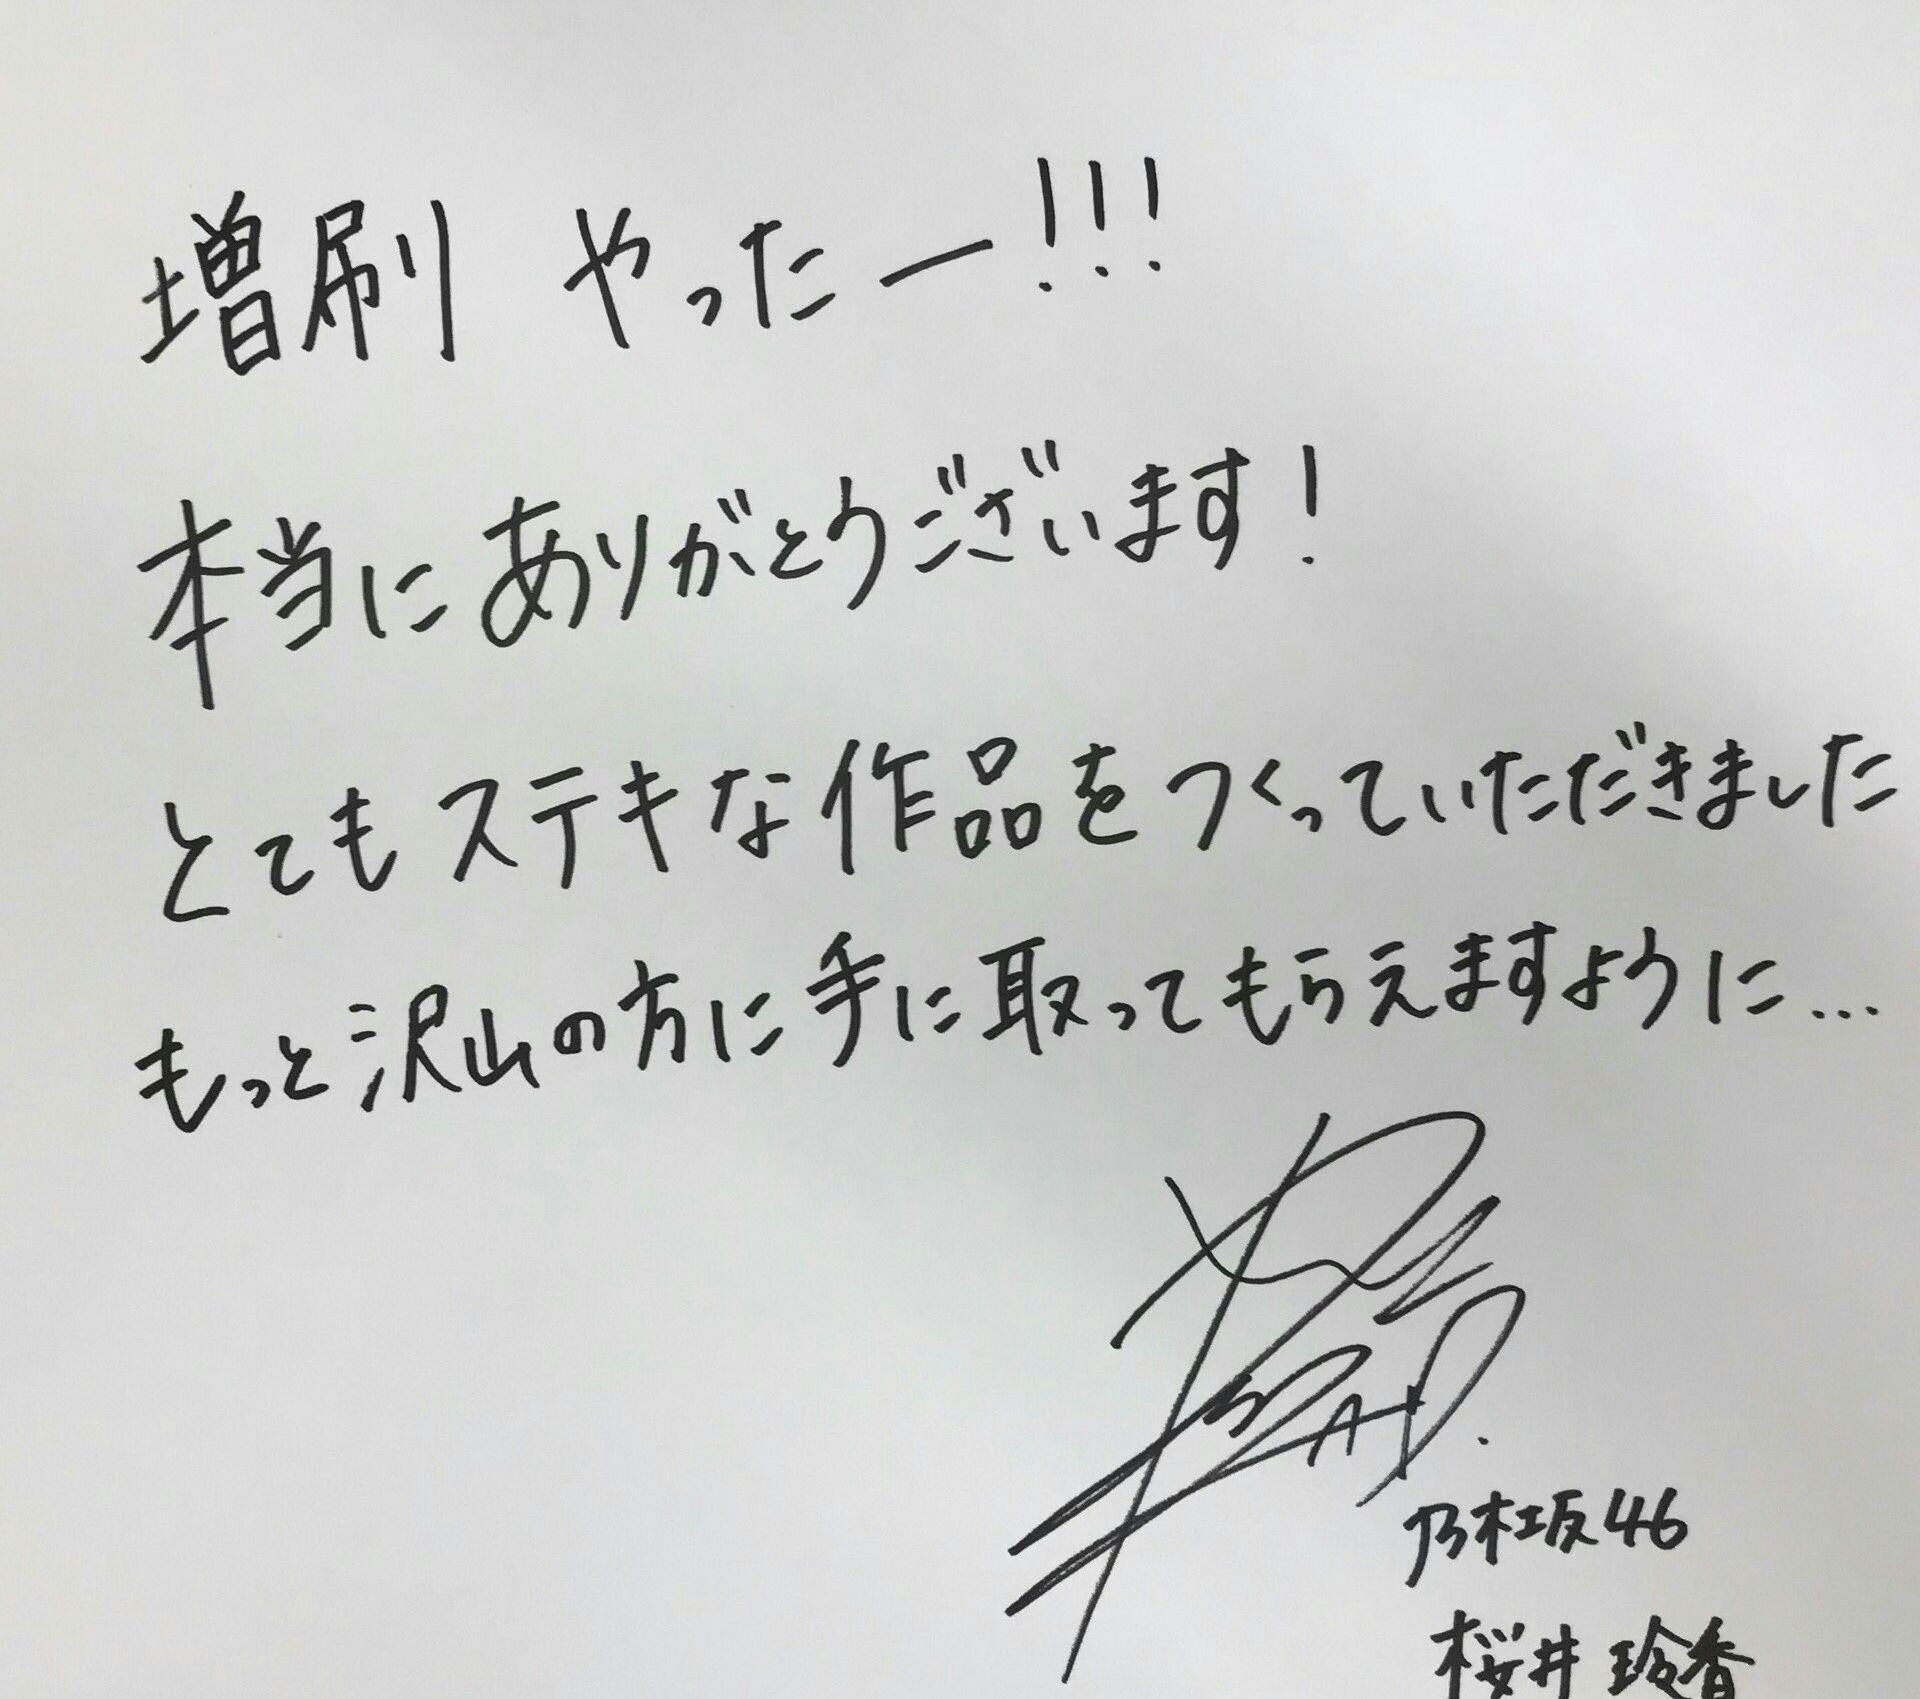 増刷 やったー!!!
本当にありがとうございます!
とてもステキな作品をつくっていただきました
もっと沢山の方に手に取ってもらえますように...
乃木坂46
桜井 玲香